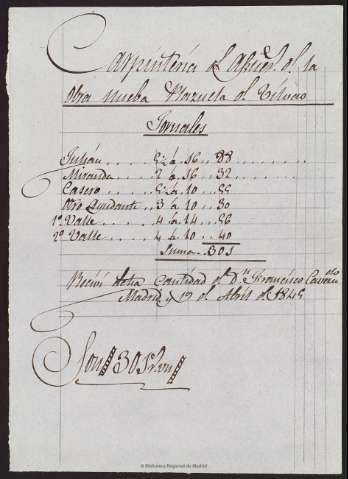 Carpinteria de
obra nueba Plazuela de Bilvao
Jornales
Julián . . . . 5½ à 16 . . 88
Miranda . . . . 2 à 16 . . 32
Casero . . . . 5½ à 10 . . 55
Otro Ayudante . . 3 à 10 . . 30
1º Valle . . . . 4 à 14 . . 56
2º Valle . . . . 4 à 10 . . 40
Suma . . 301
Recivi dicha Cantidad de Dn Francisco
Madrid y de Abril de 1845
Son 301 Rvn
© Biblioteca Regional de Madrid